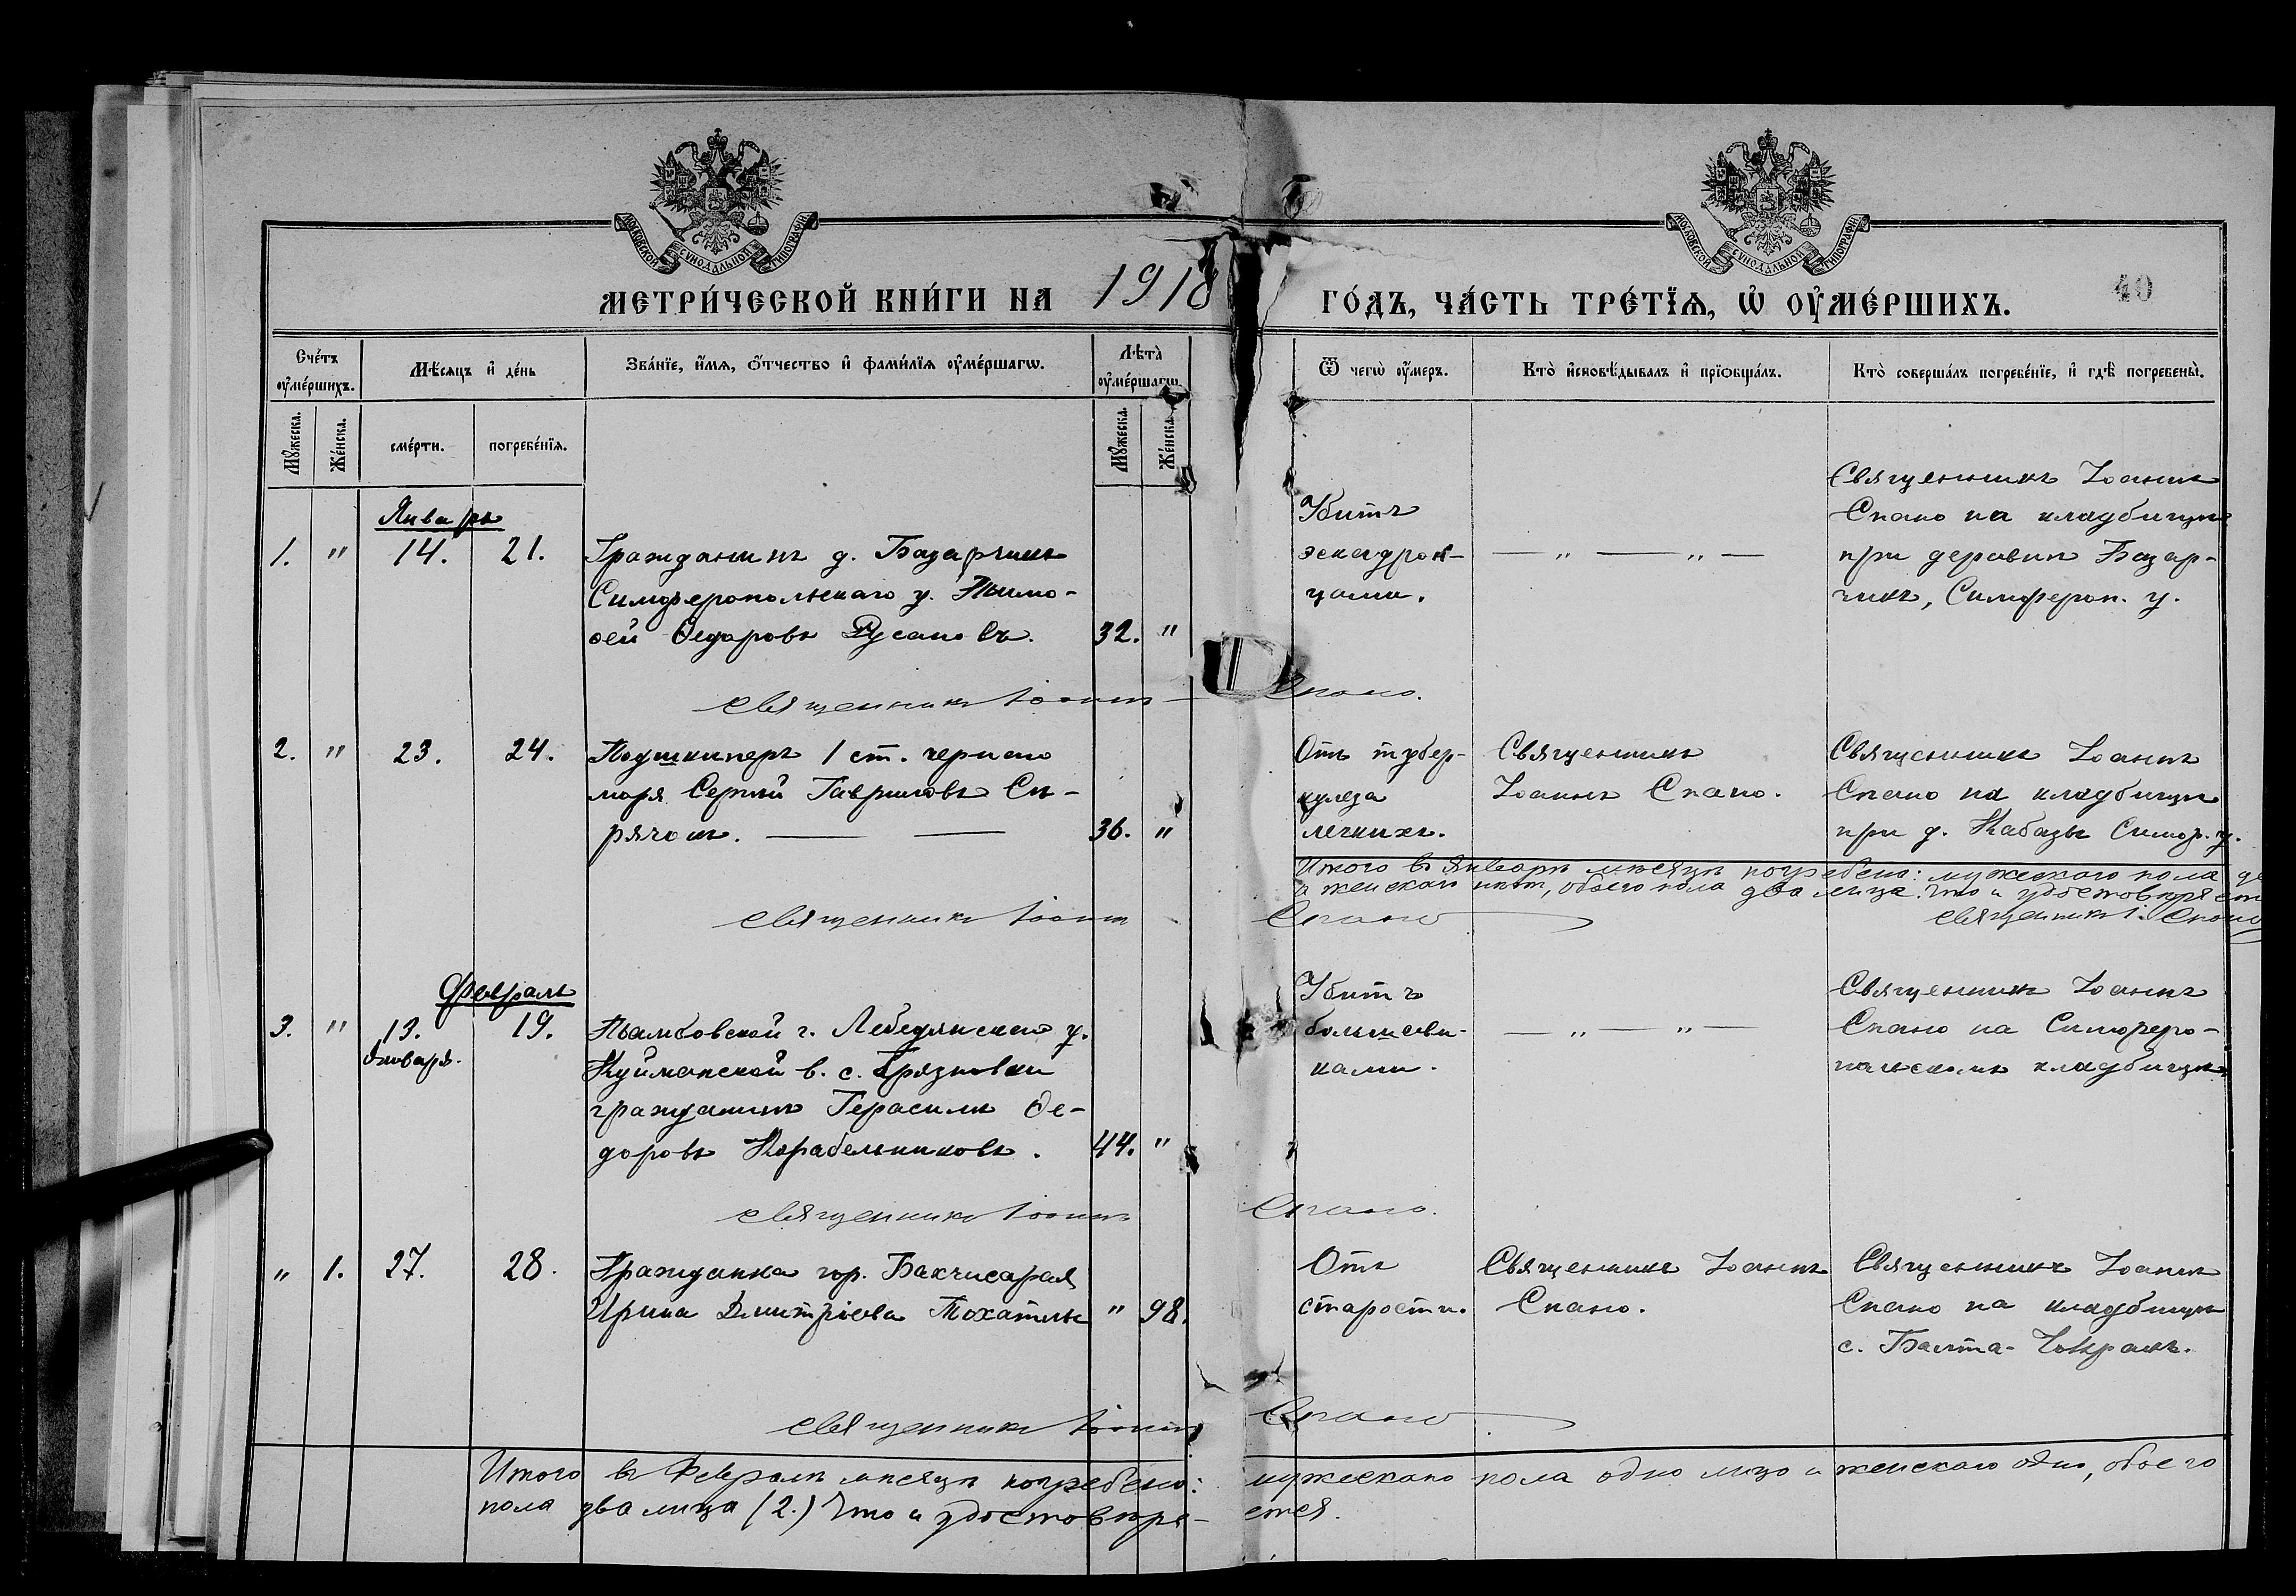 МОСКОВСКОЙ СѴНОДАЛЬНОЙ ТИПОГРАФІИ
МОСКОВСКОЙ СѴНОДАЛЬНОЙ ТИПОГРАФІИ
МЕТРИ́ЧЕСКОЙ КНИ́ГИ НА 1918 ГО́ДЪ, ЧА́СТЬ ТРЕ́ТІѦ, Ѡ ОУМЕ́РШИХЪ.
40
Сче́тъ оуме́ршихъ.
Мѣ́сяцъ и де́нь
Зва́нїе, и́мѧ, ѻ́тчество и фами́лїѧ оуме́ршагѡ.
Лѣта̀ оуме́ршагѡ.
Ѿ чегѡ̀ оу́меръ.
Кто̀ исповѣ́дывалъ и прїѡбща́лъ.
Кто̀ соверша́лъ погребе́нїе, и гдѣ̀ погребены̀.
Мꙋ́жеска.
Же́нска.
сме́рти.
погребе́нїѧ.
Мꙋ́жеска.
Же́нска.
Январь
1. " 14. 21.
Гражданинъ д. Базарчикъ
Симферопольскаго у. Тимо-
ѳей Ѳедоровъ Русановъ. 32. "
Убитъ
эскадрон-
цами.
— " — " —
Священникъ Іоаннъ
Спано на кладбищѣ
при деревни Базар-
чикъ, Симфероп. у.
священникъ Іоаннъ Спано.
2. " 23. 24.
Подшкиперъ 1 ст. чернаго
моря Сергѣй Гавриловъ Си-
рячокъ. — — 36. "
Отъ тубер-
кулеза
легкихъ.
Священникъ
Іоаннъ Спано.
Священникъ Іоаннъ
Спано на кладбищѣ
при д. Кабазы Симф. у.
Итого въ Январѣ мѣсяцѣ погребено: мужескаго пола
и женскаго нѣтъ, обоего пола два лица. Что и удостовѣряетъ
священникъ І. Спано
священникъ Іоаннъ Спано
Февраль
3. " 13. 19.
Января.
Тамбовской г. Лебедянскаго у.
Куйманской в. с. Грязновки
гражданинъ Герасимъ Ѳе-
доровъ Корабельниковъ. 44. "
Убитъ
большеви-
ками.
— " — " —
Священникъ Іоаннъ
Спано на Симферо-
польскомъ кладбищѣ
священникъ Іоаннъ Спано.
" 1. 27. 28.
Гражданка гор. Бахчисарая
Ирина Дмитріева " 98.
Отъ
старости.
Священникъ Іоаннъ
Спано.
Священникъ Іоаннъ
Спано на кладбищѣ
с. Балта-Чокракъ.
священникъ Іоаннъ Спано
Итого въ Февралѣ мѣсяцѣ погребено: мужескаго пола одно лицо и женскаго одно, обоего
пола два лица (2.) Что и удостовѣря- ется.